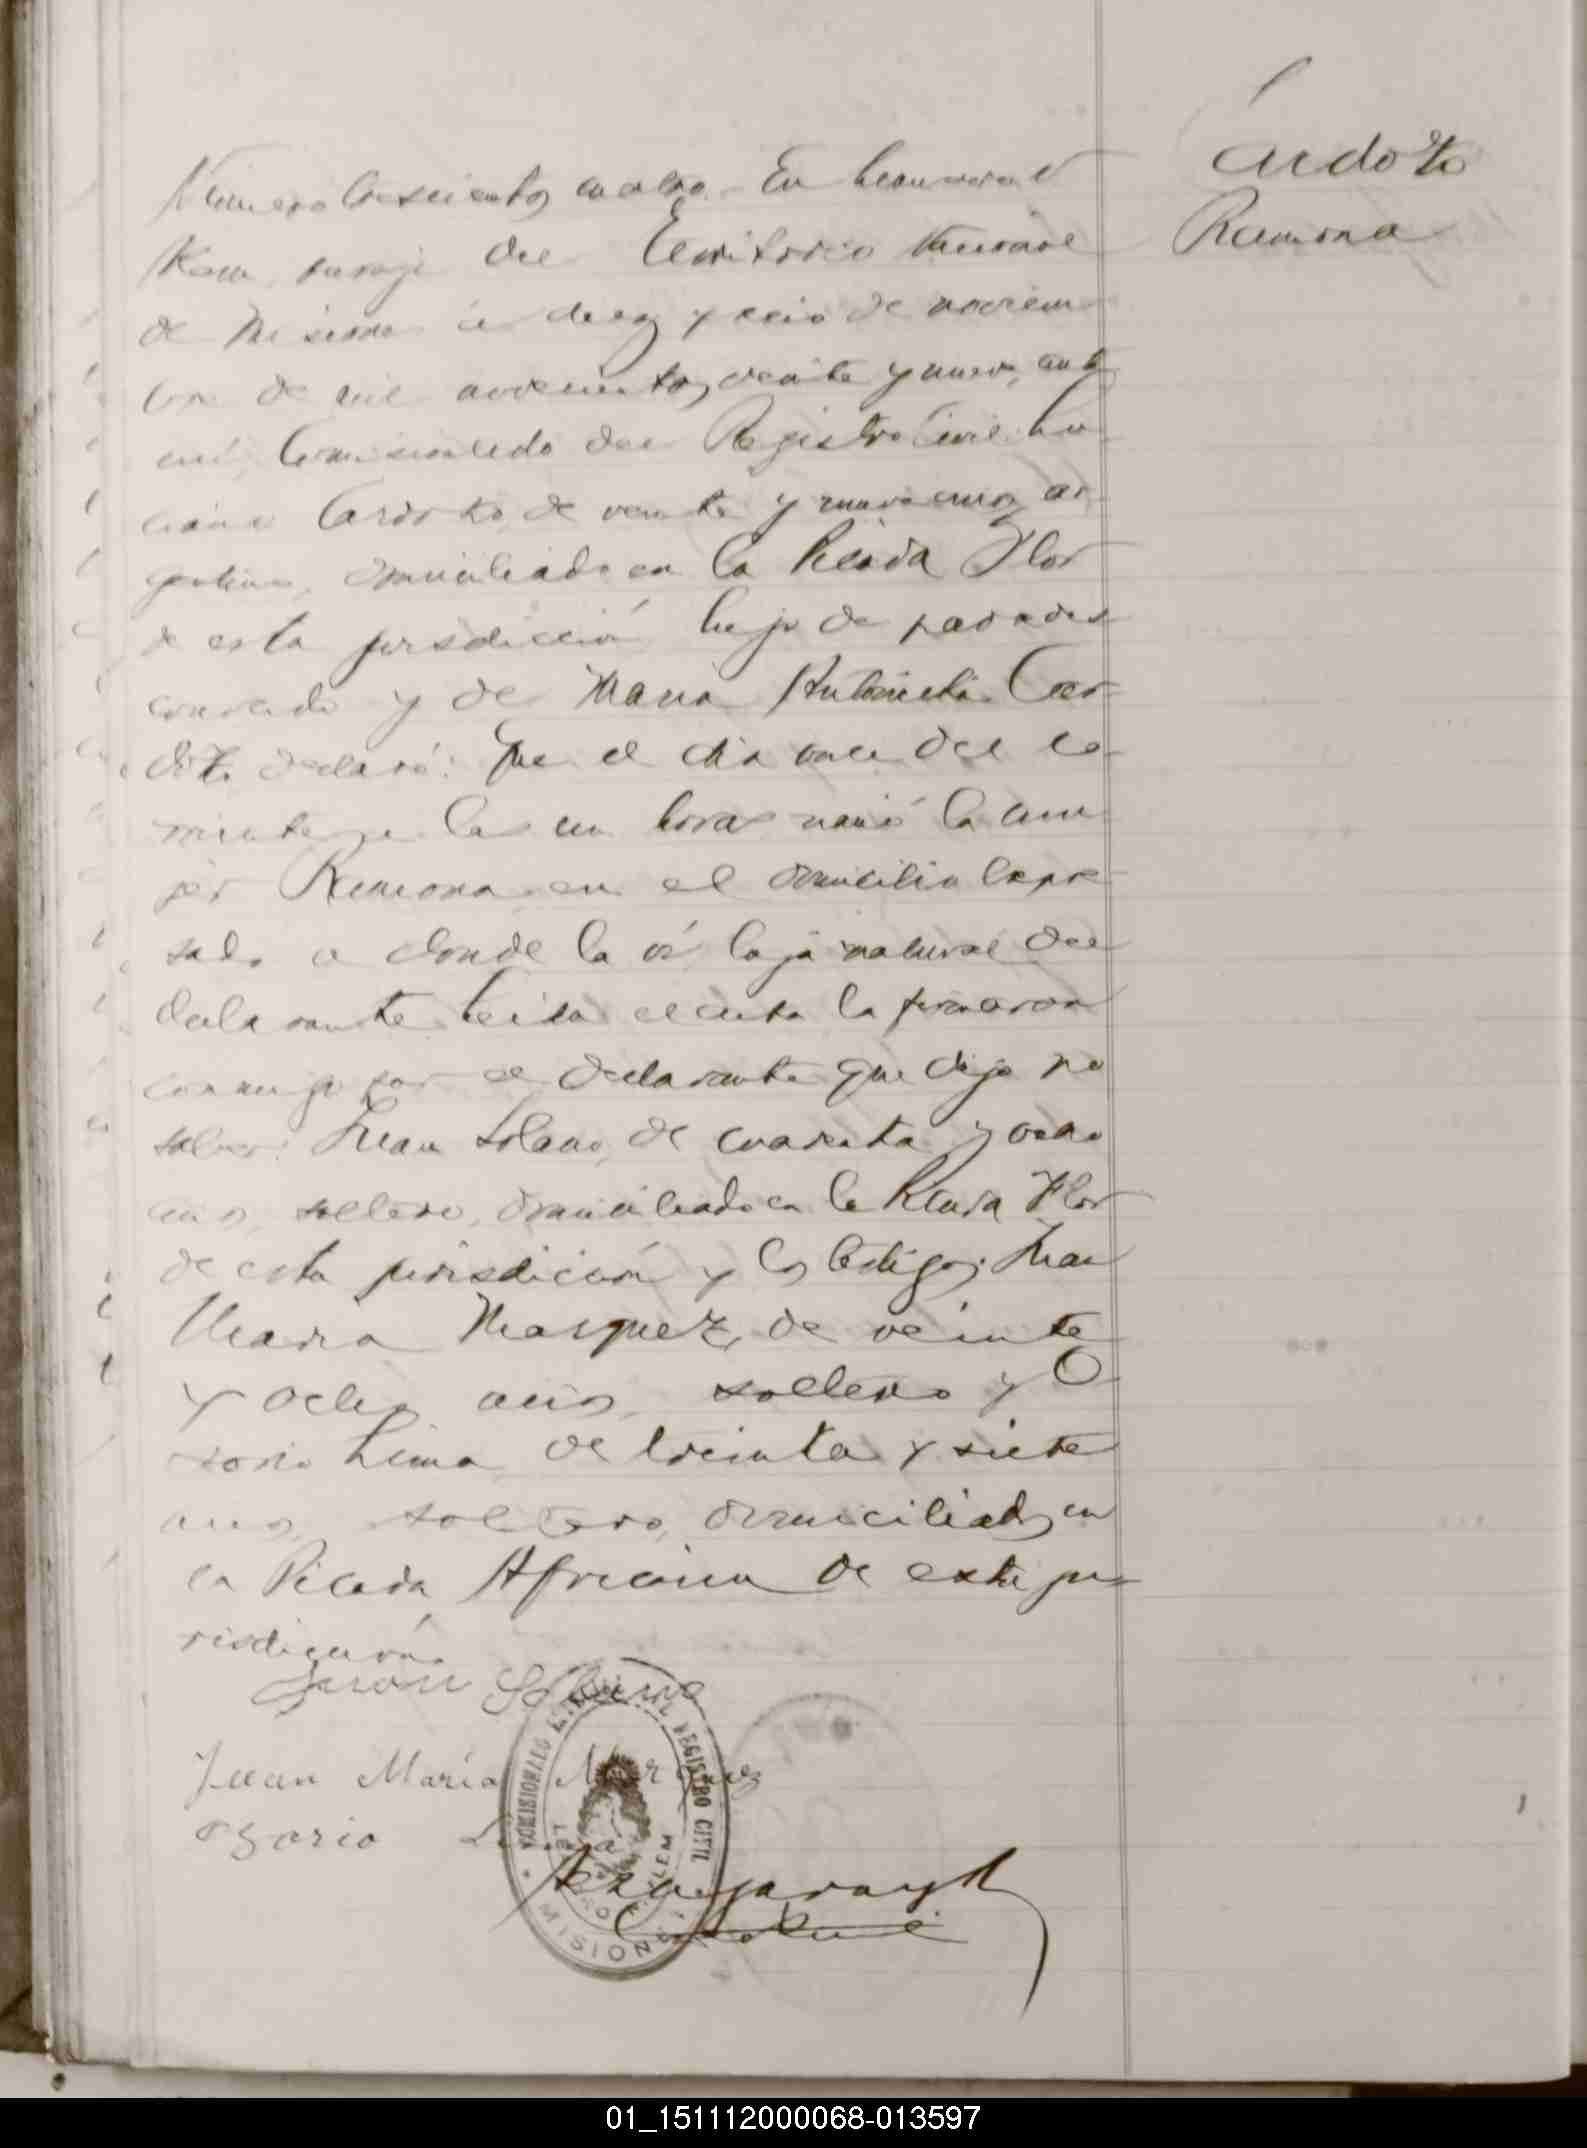 Cardozo
Ramona
Número trescientos cuatro. En Leandro N
Alem, paraje del Territorio Nacional
de Misiones á diez y seis de noviem
bre de mil novecientos veinte y nueve, ante
mi, Comisionado del Registro Civil: Lu
ciano Cardozo, de veinte y nueve años, ar
gentino, domiciliado en la Picada Flor
de esta jurisdicción hijo de padre des
conocido y de Maria Antonieta Car
dozo declaró: Que el dia once del co
rriente a las horas nació la mu
jer Ramona en el domicilio expre
sado a donde la ví hija natural del
declarante Leida el acta la firmaron
conmigo por el declarante que dijo no
saber: Juan Solano, de cuarenta y ocho
años, soltero, domiciliado en la Picada Flor
de esta jurisdicción y los testigos: Juan
Maria Marquez, de veinte
y ocho años, soltero y O
sorio Lima de treinta y siete
años, soltero, domiciliados en
la Picada Africana de esta ju
risdicción.
Juan Solano
Juan María Marquez
Osorio Lima
COMISIONADO REGISTRO CIVIL
LEANDRO N. ALEM
MISIONES
01_151112000068-013597